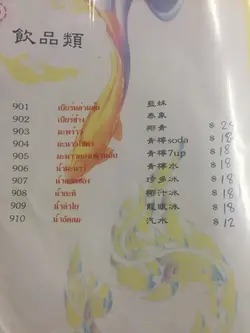 飲品類
901 藍妹
902 เบียร์ช้าง 泰象
903 มะพร้าว 椰青 $ 28
904 มะนาวโซดา 青檸soda $ 18
905 青檸7up $ 18
906 น้ำมะนาว 青檸水 $ 18
907 珍多冰 $ 18
908 น้ำกะทิ 椰汁冰 $ 18
909 น้ำลำไย 龍眼冰 $ 18
910 น้ำอัดลม 汽水 $ 12